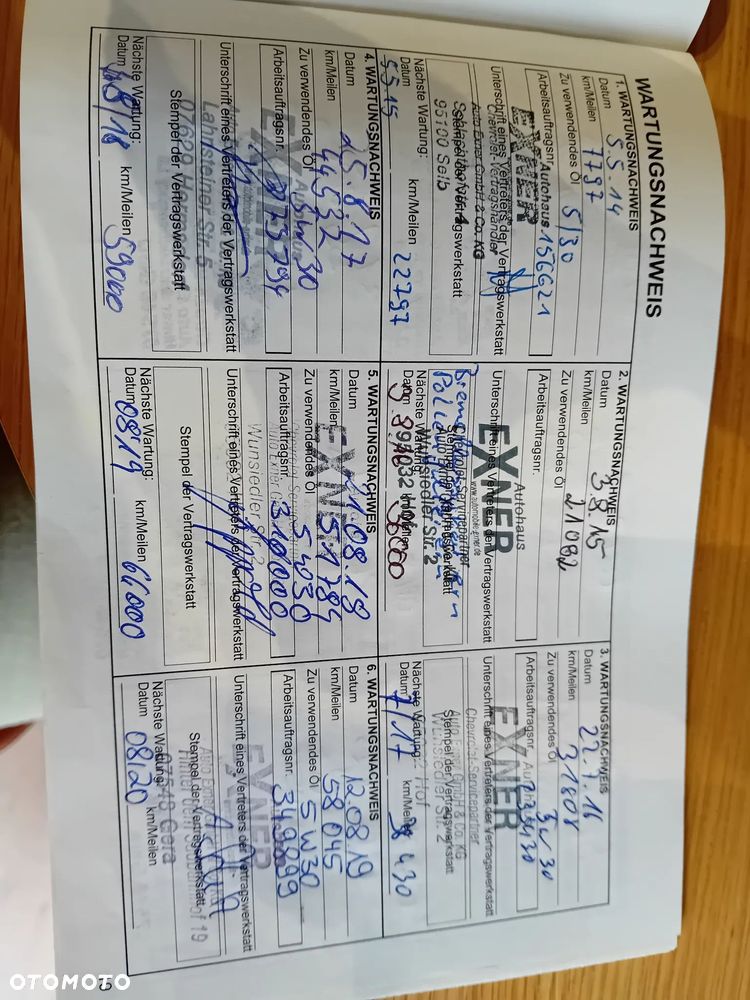 WARTUNGSNACHWEIS
1. WARTUNGSNACHWEIS
Datum 5.5.14
km/Meilen 7797
Zu verwendendes Öl 5/30
Arbeitsauftragsnr. 156621
Autohaus
EXNER
Unterschrift eines Vertreters der Vertragswerkstatt
Auto Exner GmbH & Co. KG
Stempel der Vertragswerkstatt
95100 Selb
Nächste Wartung:
Datum 5.5.15 km/Meilen 22797
2. WARTUNGSNACHWEIS
Datum 3.8.15
km/Meilen 21092
Zu verwendendes Öl
Arbeitsauftragsnr.
Autohaus
EXNER
www.automobile-exner.de
Unterschrift eines Vertreters der Vertragswerkstatt
Servicepartner
Stempel der Vertragswerkstatt
Wunsiedler Str. 2
95032 Hof
Nächste Wartung:
Datum km/Meilen
3. WARTUNGSNACHWEIS
Datum 22.7.16
km/Meilen
Zu verwendendes Öl 5W30
Arbeitsauftragsnr.
EXNER
Unterschrift eines Vertreters der Vertragswerkstatt
Chevrolet-Servicepartner
Auto Exner GmbH & Co. KG
Stempel der Vertragswerkstatt
Wunsiedler Str. 2
Hof
Nächste Wartung:
Datum 7/17 km/Meilen
4. WARTUNGSNACHWEIS
Datum 25.8.17
km/Meilen 44532
Zu verwendendes Öl 30
Arbeitsauftragsnr. 273794
EXNER
Unterschrift eines Vertreters der Vertragswerkstatt
Lahnsteiner Str. 5
Stempel der Vertragswerkstatt
07629
Nächste Wartung:
Datum 08/18 km/Meilen 59000
5. WARTUNGSNACHWEIS
Datum 21.08.18
km/Meilen 51784
Zu verwendendes Öl 5W30
Arbeitsauftragsnr. 310000
EXNER
Unterschrift eines Vertreters der Vertragswerkstatt
Wunsiedler Str. 2
Stempel der Vertragswerkstatt
Nächste Wartung:
Datum 08/19 km/Meilen 66000
6. WARTUNGSNACHWEIS
Datum 12.08.19
km/Meilen 58045
Zu verwendendes Öl 5W30
Arbeitsauftragsnr. 349899
EXNER
Unterschrift eines Vertreters der Vertragswerkstatt
Stempel der Vertragswerkstatt
Gera
Nächste Wartung:
Datum 08/20 km/Meilen
OTOMOTO